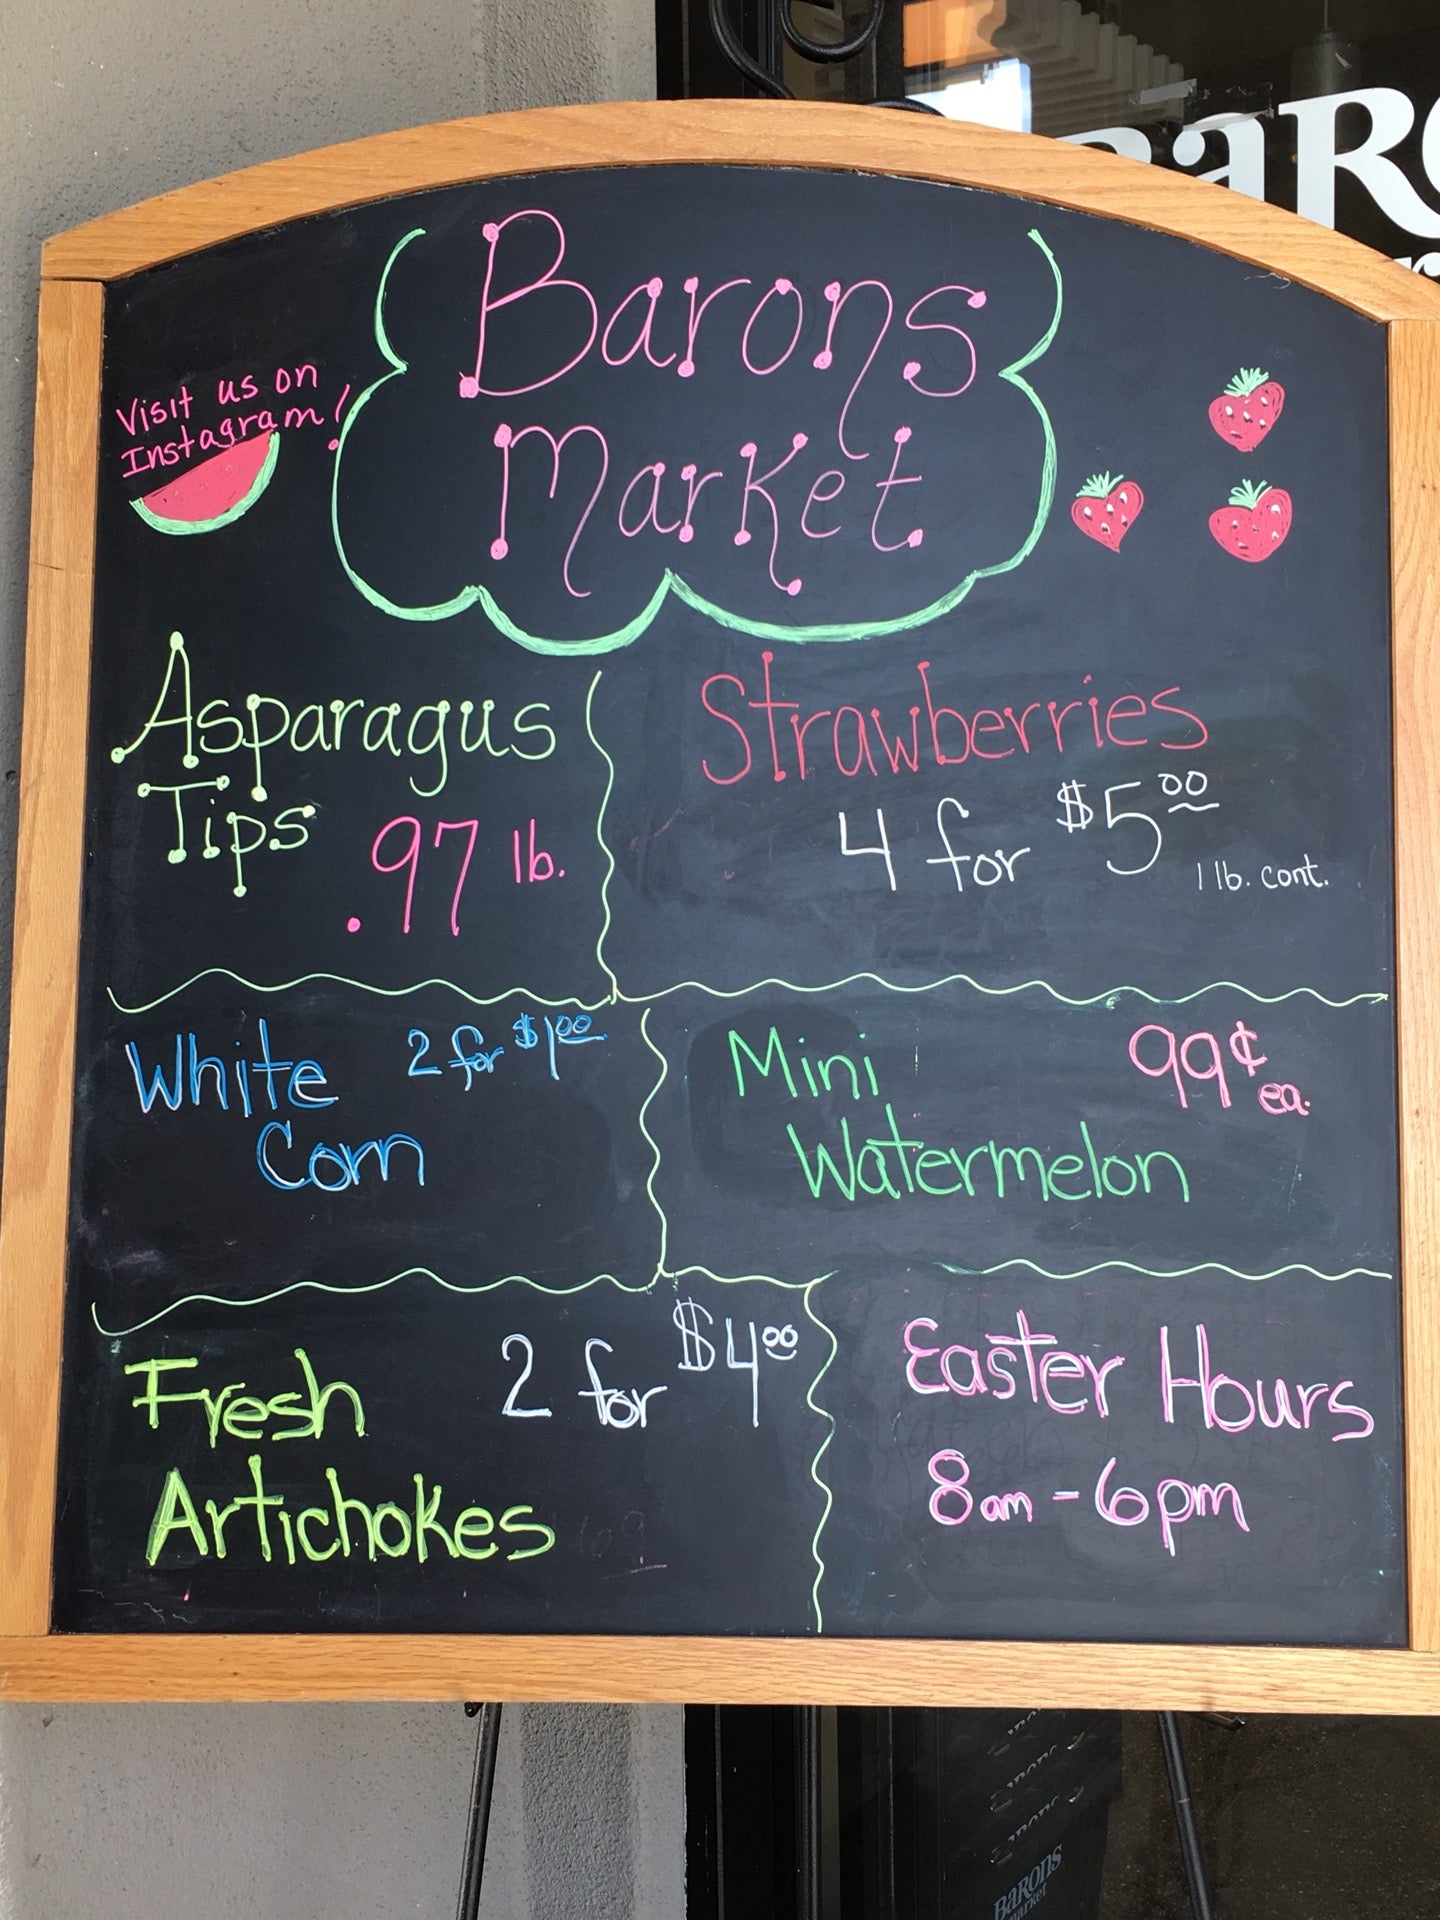 Barons
Market
Visit us on
Instagram!
Asparagus
Tips
.97 lb.
Strawberries
4 for $5.00
1 lb. cont.
White
Corn
2 for $1.00
Mini
Watermelon
99¢
ea.
Fresh
Artichokes
2 for $4.00
Easter Hours
8am - 6pm
BARONS
market